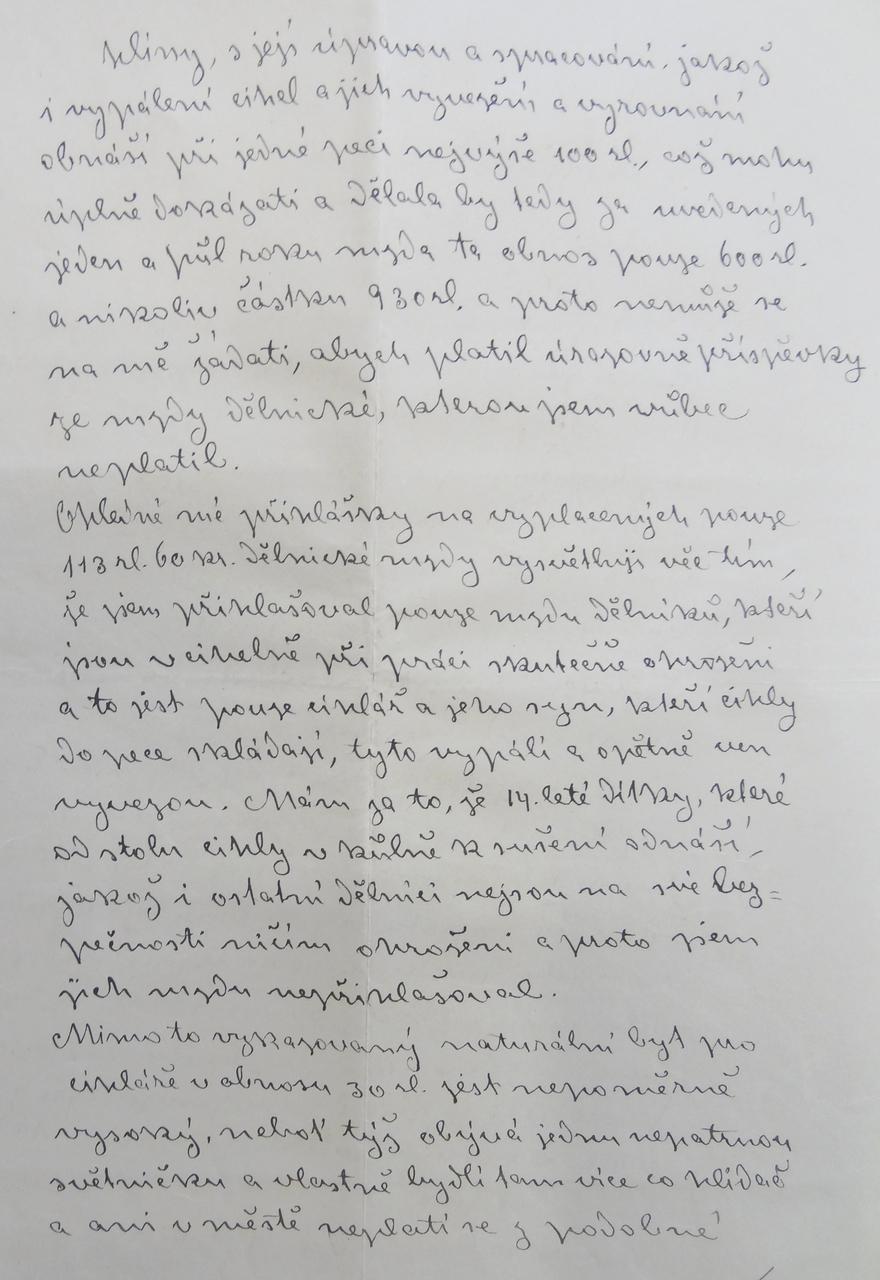 hlíny, s její úpravou a spracování, jakož
i vypálení cihel a jich vyvezení a vyrovnání
obnáší při jedné peci nejvýše 100 zl., což mohu
úplně dokázati a dělala by tedy za uvedených
jeden a půl roku mzda ta obnos pouze 600 zl.
a nikoliv částku 930 zl. a proto nemůže se
na mě žádati, abych platil úrazovné příspěvky
ze mzdy dělnické, kterou jsem vůbec
neplatil.
Ohledně mé přihlášky na vyplacených pouze
113 zl. 60 kr. dělnické mzdy vysvětluji věc tím,
že jsem přihlašoval pouze mzdu dělníků, kteří
jsou v cihelně při práci skutečně ohroženi
a to jest pouze cihlář a jeho syn, kteří cihly
do pece skládají, tyto vypálí a opětně ven
vyvezou. Mám za to, že 14. leté dítky, které
od stolu cihly v kůlně k sušení odnáší,
jakož i ostatní dělníci nejsou na své bez=
pečnosti ničím ohroženi a proto jsem
jich mzdu nepřihlašoval.
Mimo to vykazovaný naturální byt pro
cihláře v obnosu 30 zl. jest nepoměrně
vysoký, neboť týž obývá jednu nepatrnou
světničku a vlastně bydlí tam více co hlídač
a ani v městě neplatí se z podobné